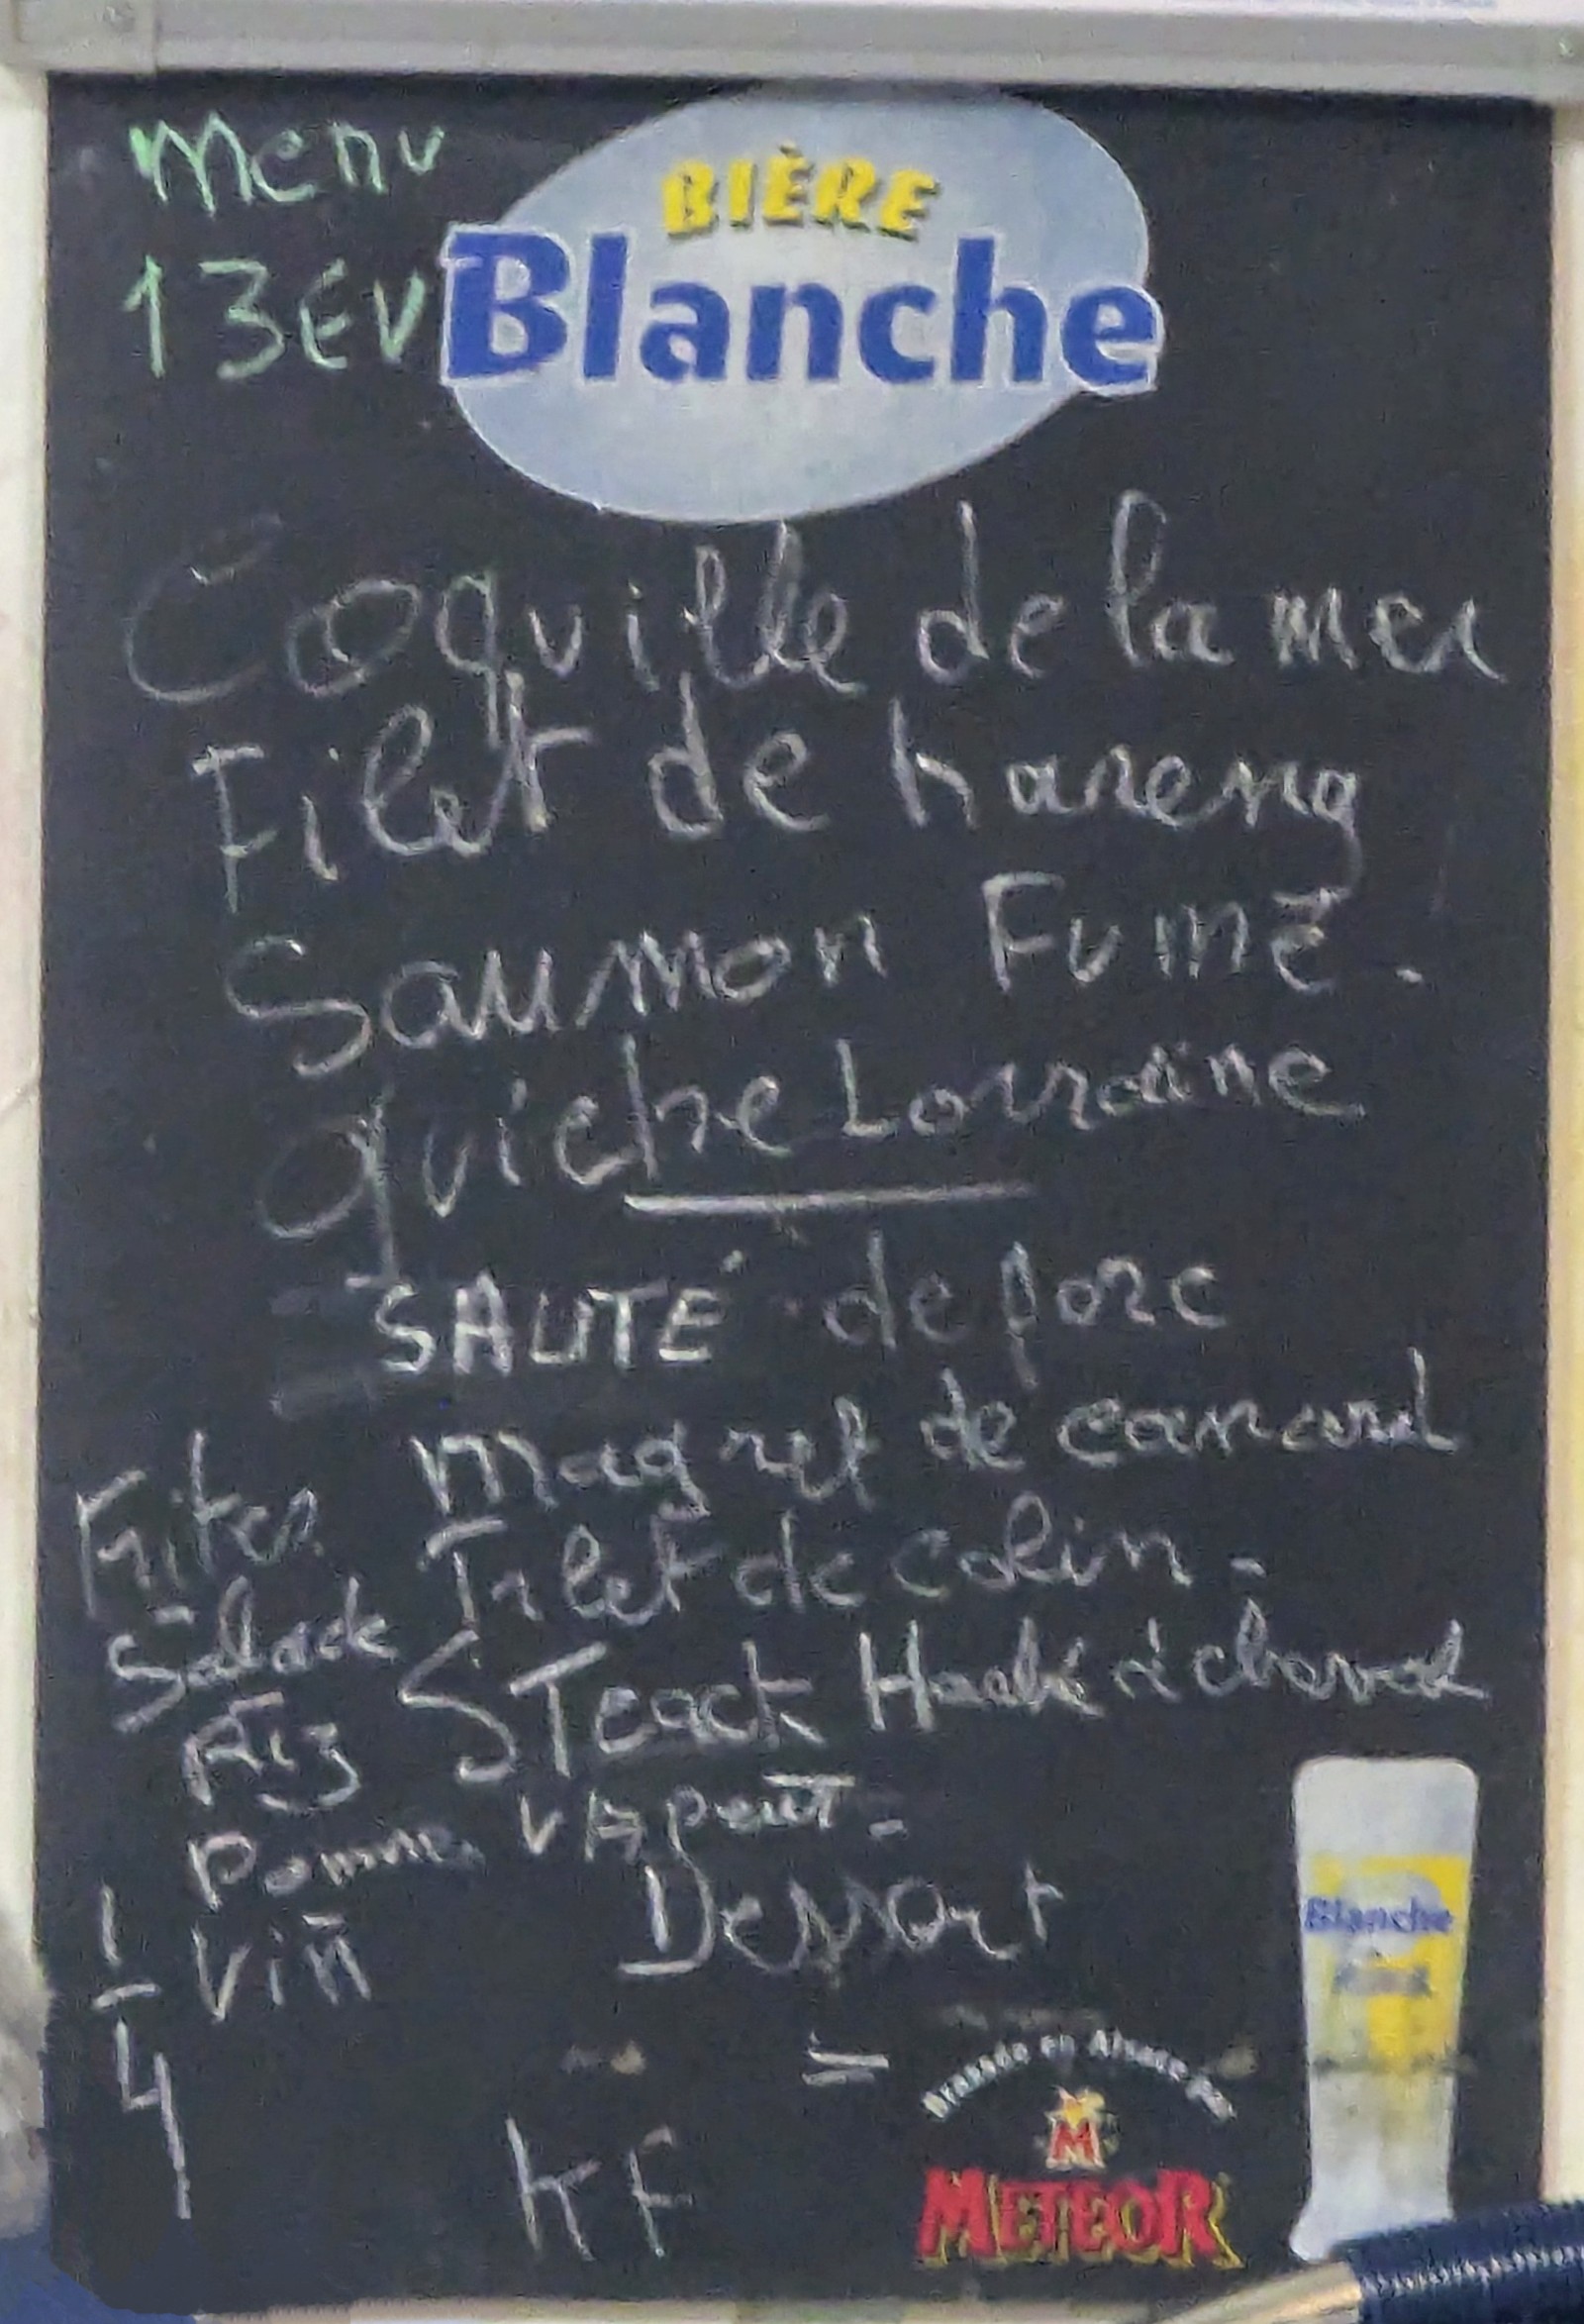 Menu
13EU
BIÈRE
Blanche
Coquille de la mer
Filet de hareng
Saumon Fumé.
quiche Lorraine
SAUTÉ de porc
Magret de canard
Frites Filet de colin.
Salade STeack Haché à cheval
Riz
Pomme VApeur
1/4 Vin Dessert
KF
Blanche
METEOR